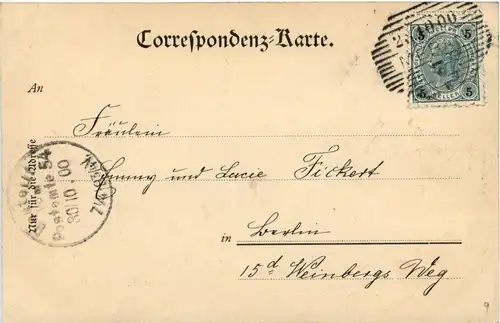 Correspondenz-Karte.
5 5
5 HELLER 5
An
Fräulein
Jenny und Lucie Fickert
Nur für die Adresse
Postamte 54
30/10.00
in Berlin
15d Weinbergs Weg